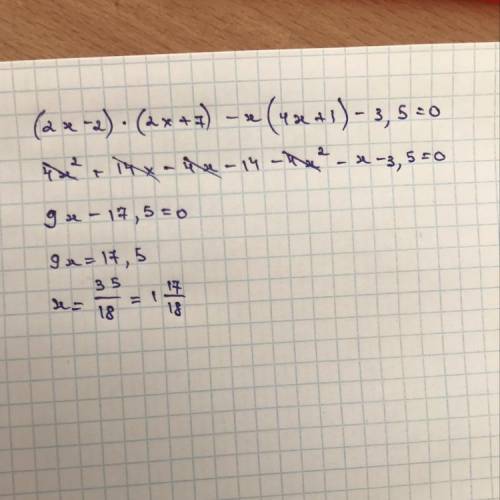 (2x-2)·(2x+7) -x(4x+1)-3,5=0
4x² + 14x - 4x - 14 - 4x² - x - 3,5=0
9x - 17,5=0
9x = 17,5
x = 35/18 = 1 17/18